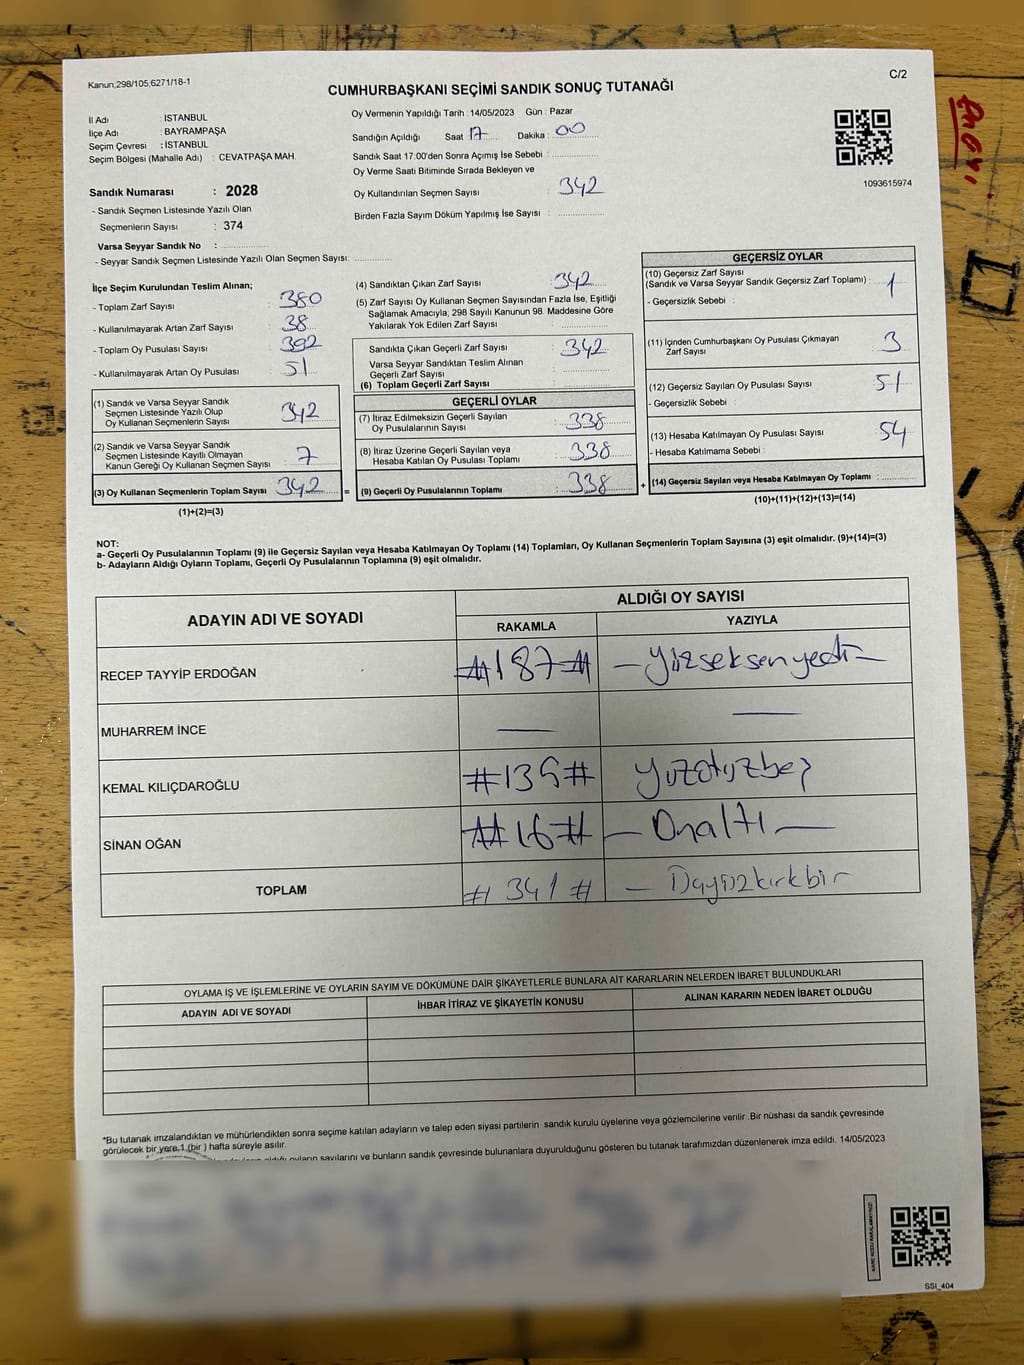 Kanun,298/105,6271/18-1
C/2
CUMHURBAŞKANI SEÇİMİ SANDIK SONUÇ TUTANAĞI
İl Adı : İSTANBUL
İlçe Adı : BAYRAMPAŞA
Seçim Çevresi : İSTANBUL
Seçim Bölgesi (Mahalle Adı) : CEVATPAŞA MAH.
Sandık Numarası : 2028
- Sandık Seçmen Listesinde Yazılı Olan
Seçmenlerin Sayısı : 374
Varsa Seyyar Sandık No :
- Seyyar Sandık Seçmen Listesinde Yazılı Olan Seçmen Sayısı:
Oy Vermenin Yapıldığı Tarih : 14/05/2023 Gün : Pazar
Sandığın Açıldığı Saat 17 Dakika : 00
Sandık Saat 17:00'den Sonra Açımış İse Sebebi :
Oy Verme Saati Bitiminde Sırada Bekleyen ve
Oy Kullandırılan Seçmen Sayısı : 342
Birden Fazla Sayım Döküm Yapılmış İse Sayısı :
1093615974
İlçe Seçim Kurulundan Teslim Alınan;
- Toplam Zarf Sayısı : 380
- Kullanılmayarak Artan Zarf Sayısı : 38
- Toplam Oy Pusulası Sayısı : 392
- Kullanılmayarak Artan Oy Pusulası : 51
(1) Sandık ve Varsa Seyyar Sandık
Seçmen Listesinde Yazılı Olup
Oy Kullanan Seçmenlerin Sayısı : 342
(2) Sandık ve Varsa Seyyar Sandık
Seçmen Listesinde Kayıtlı Olmayan
Kanun Gereği Oy Kullanan Seçmen Sayısı : 7
(3) Oy Kullanan Seçmenlerin Toplam Sayısı : 342
(1)+(2)=(3)
=
(4) Sandıktan Çıkan Zarf Sayısı : 342
(5) Zarf Sayısı Oy Kullanan Seçmen Sayısından Fazla İse, Eşitliği
Sağlamak Amacıyla, 298 Sayılı Kanunun 98. Maddesine Göre
Yakılarak Yok Edilen Zarf Sayısı :
Sandıkta Çıkan Geçerli Zarf Sayısı : 342
Varsa Seyyar Sandıktan Teslim Alınan
Geçerli Zarf Sayısı :
(6) Toplam Geçerli Zarf Sayısı :
GEÇERLİ OYLAR
(7) İtiraz Edilmeksizin Geçerli Sayılan
Oy Pusulalarının Sayısı : 338
(8) İtiraz Üzerine Geçerli Sayılan veya
Hesaba Katılan Oy Pusulası Toplamı : 338
(9) Geçerli Oy Pusulalarının Toplamı : 338
+
GEÇERSİZ OYLAR
(10) Geçersiz Zarf Sayısı
(Sandık ve Varsa Seyyar Sandık Geçersiz Zarf Toplamı) : 1
- Geçersizlik Sebebi :
(11) İçinden Cumhurbaşkanı Oy Pusulası Çıkmayan
Zarf Sayısı : 3
(12) Geçersiz Sayılan Oy Pusulası Sayısı : 51
- Geçersizlik Sebebi :
(13) Hesaba Katılmayan Oy Pusulası Sayısı : 54
- Hesaba Katılmama Sebebi :
(14) Geçersiz Sayılan veya Hesaba Katılmayan Oy Toplamı :
(10)+(11)+(12)+(13)=(14)
NOT:
a- Geçerli Oy Pusulalarının Toplamı (9) ile Geçersiz Sayılan veya Hesaba Katılmayan Oy Toplamı (14) Toplamları, Oy Kullanan Seçmenlerin Toplam Sayısına (3) eşit olmalıdır. (9)+(14)=(3)
b- Adayların Aldığı Oyların Toplamı, Geçerli Oy Pusulalarının Toplamına (9) eşit olmalıdır.
ADAYIN ADI VE SOYADI
ALDIĞI OY SAYISI
RAKAMLA YAZIYLA
RECEP TAYYİP ERDOĞAN #187# - Yüzseksenyedi -
MUHARREM İNCE — —
KEMAL KILIÇDAROĞLU #135# Yüzotuzbeş
SİNAN OĞAN #16# - Onaltı -
TOPLAM # 341 # - Üçyüzkırkbir
OYLAMA İŞ VE İŞLEMLERİNE VE OYLARIN SAYIM VE DÖKÜMÜNE DAİR ŞİKAYETLERLE BUNLARA AİT KARARLARIN NELERDEN İBARET BULUNDUKLARI
ADAYIN ADI VE SOYADI İHBAR İTİRAZ VE ŞİKAYETİN KONUSU ALINAN KARARIN NEDEN İBARET OLDUĞU
*Bu tutanak imzalandıktan ve mühürlendikten sonra seçime katılan adayların ve talep eden siyasi partilerin sandık kurulu üyelerine veya gözlemcilerine verilir .Bir nüshası da sandık çevresinde
görülecek bir yere 1 (bir ) hafta süreyle asılır.
oyların sayılarını ve bunların sandık çevresinde bulunanlara duyurulduğunu gösteren bu tutanak tarafımızdan düzenlenerek imza edildi. 14/05/2023
SSI_404